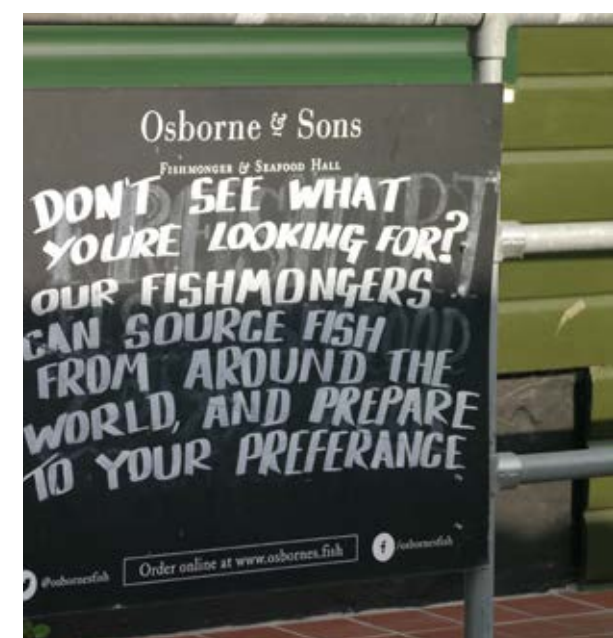 Osborne & Sons
Fishmonger & Seafood Hall
DON'T SEE WHAT
YOU'RE LOOKING FOR?
OUR FISHMONGERS
CAN SOURCE FISH
FROM AROUND THE
WORLD, AND PREPARE
TO YOUR PREFERANCE
Order online at www.osbornes.fish
@osbornesfish
/osbornesfish